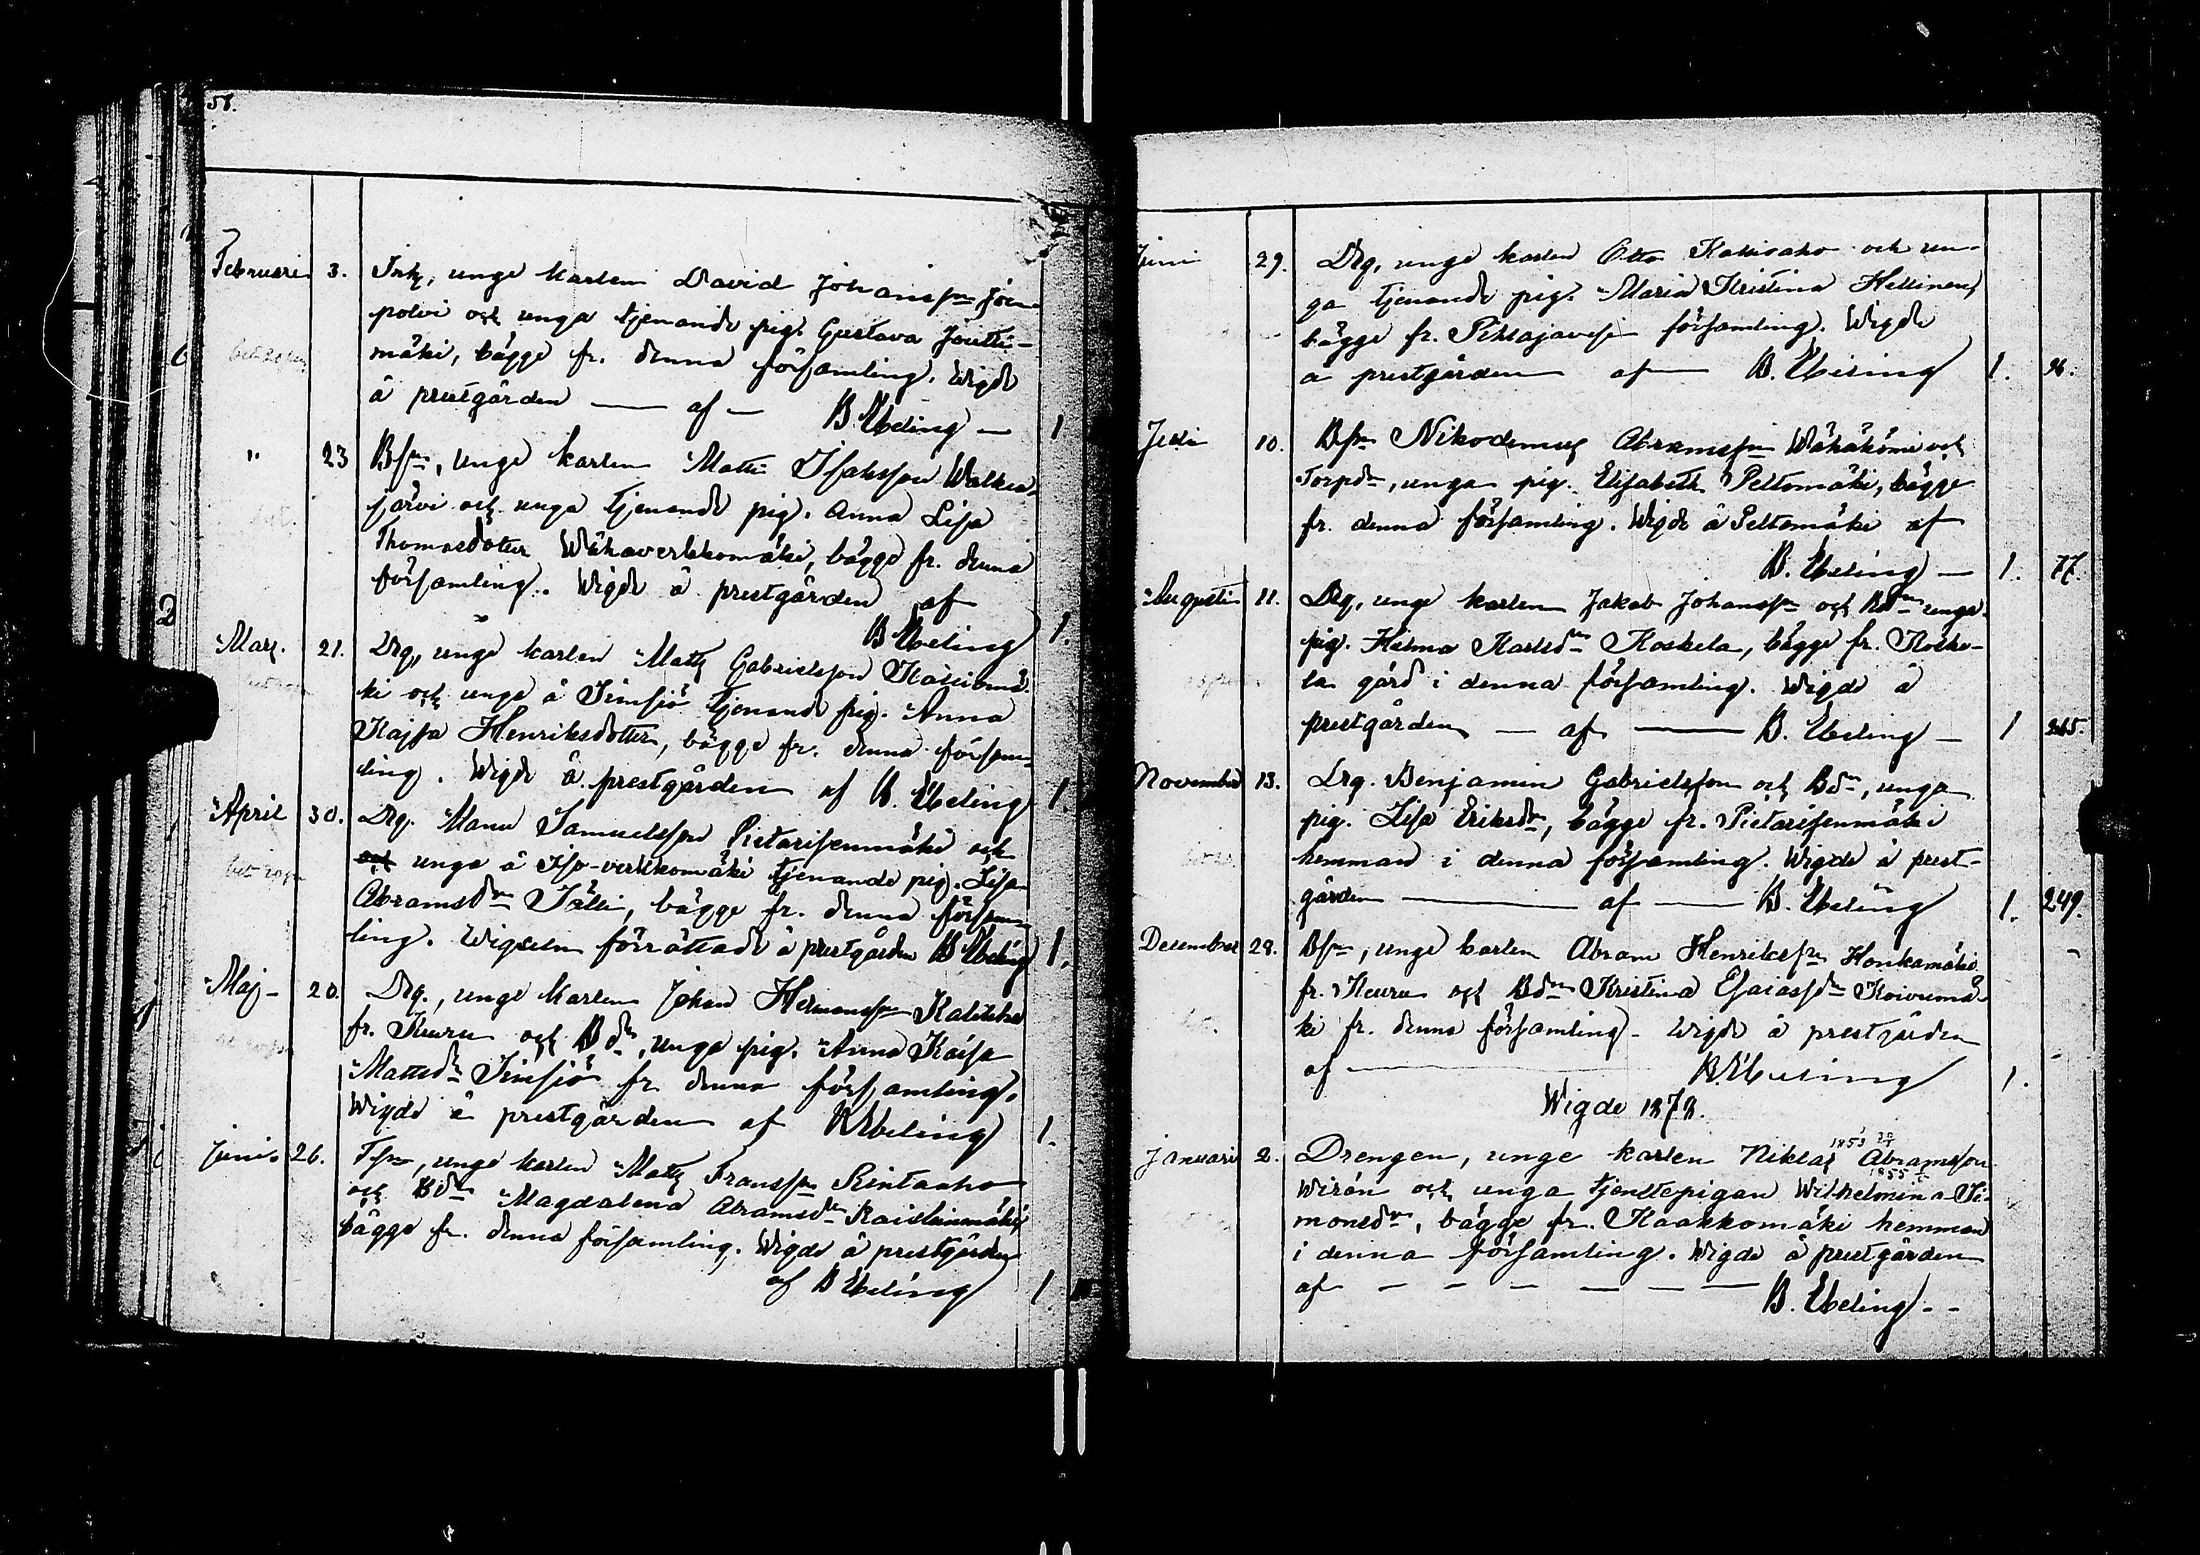 58.
Februari 3. Inh, unge karlen David Johansson Joen-
polvi och unga tjenande pig. Gustava Joutti-
mäki, bägge fr. denna församling. Wigde
å prestgården — af — B. Ebeling — 1
" 23 Bsn, unge karlen Matts Isaksson Walkea-
järvi och unga tjenande pig. Anna Lisa
Thomasdotter Wähäverkkomäki, bägge fr. denna
församling. Wigde å prestgården af
B Ebeling 1.
Mars. 21. Drg, unge karlen Matts Gabrielsson
ki och unga å Simsiö tjenande pig. Anna
Kajsa Henriksdotter, bägge fr. denna försam-
ling. Wigde å prestgården af B. Ebeling 1.
April 30. Drg. Manu Samuelsson Pietarisenmäki och
och unga å Iso-verkkomäki tjenande pig. Lisa
Abramsdr Sälli, bägge fr. denna försam-
ling. Wigseln förrättade å prestgården B Ebeling 1.
Maj - 20. Drg., unge karlen Johan Hermansson
fr. Keuru och Bdr, unga pig. Anna Kaisa
Mattsdr Simsiö fr. denna församling.
Wigde å prestgården af B Ebeling 1.
Juni. 26. Tsn, unge karlen Matts Franssn Rintaaho
och Bdr Magdalena Abramsdr
bägge fr. denna församling. Wigde å prestgården
af B Ebeling 1.
Juni 29. Drg, unge karlen Otto Kattisaho och un-
ga tjenande pig. Maria Kristina Hellinen,
bägge fr. Pihlajavesi församling. Wigde
å prestgården af — B. Ebeling 1. 96.
Juli 10. Bsn Nikodemus Abramssn Wähäkömi och
Torpdr, unga pig. Elisabeth Peltomäki, bägge
fr. denna församling. Wigde å Peltomäki af
B. Ebeling — 1. 77.
Augusti 11. Drg, unge karlen Jakob Johanssn och Bdr unga
pig. Helma Karlsdr Koskela, bägge fr. Koske-
la gård i denna församling. Wigde å
prestgården — af — B. Ebeling — 1 265.
November 13. Drg. Benjamin Gabrielsson och Bdr, unga
pig. Lisa Eriksdr, bägge fr. Pietarisenmäki
hemman i denna församling. Wigde å prest-
gården — af — B. Ebeling 1. 249.
December 28. Bsn, unge karlen Abram Henrikssn Honkamäki
fr. Keuru och Bdr Kristina Esaiasdr Koivumä-
ki fr. denna församling - Wigde å prestgården
af — B. Ebeling 1.
Wigde 1878.
Januari 2. Drengen, unge karlen Niklas Abramsson
Wirén och unga tjenstepigan Wilhelmina Si-
monsdr, bägge fr. Kaakkomäki hemman
i denna församling. Wigde å prestgården
af — — — — — B. Ebeling - -